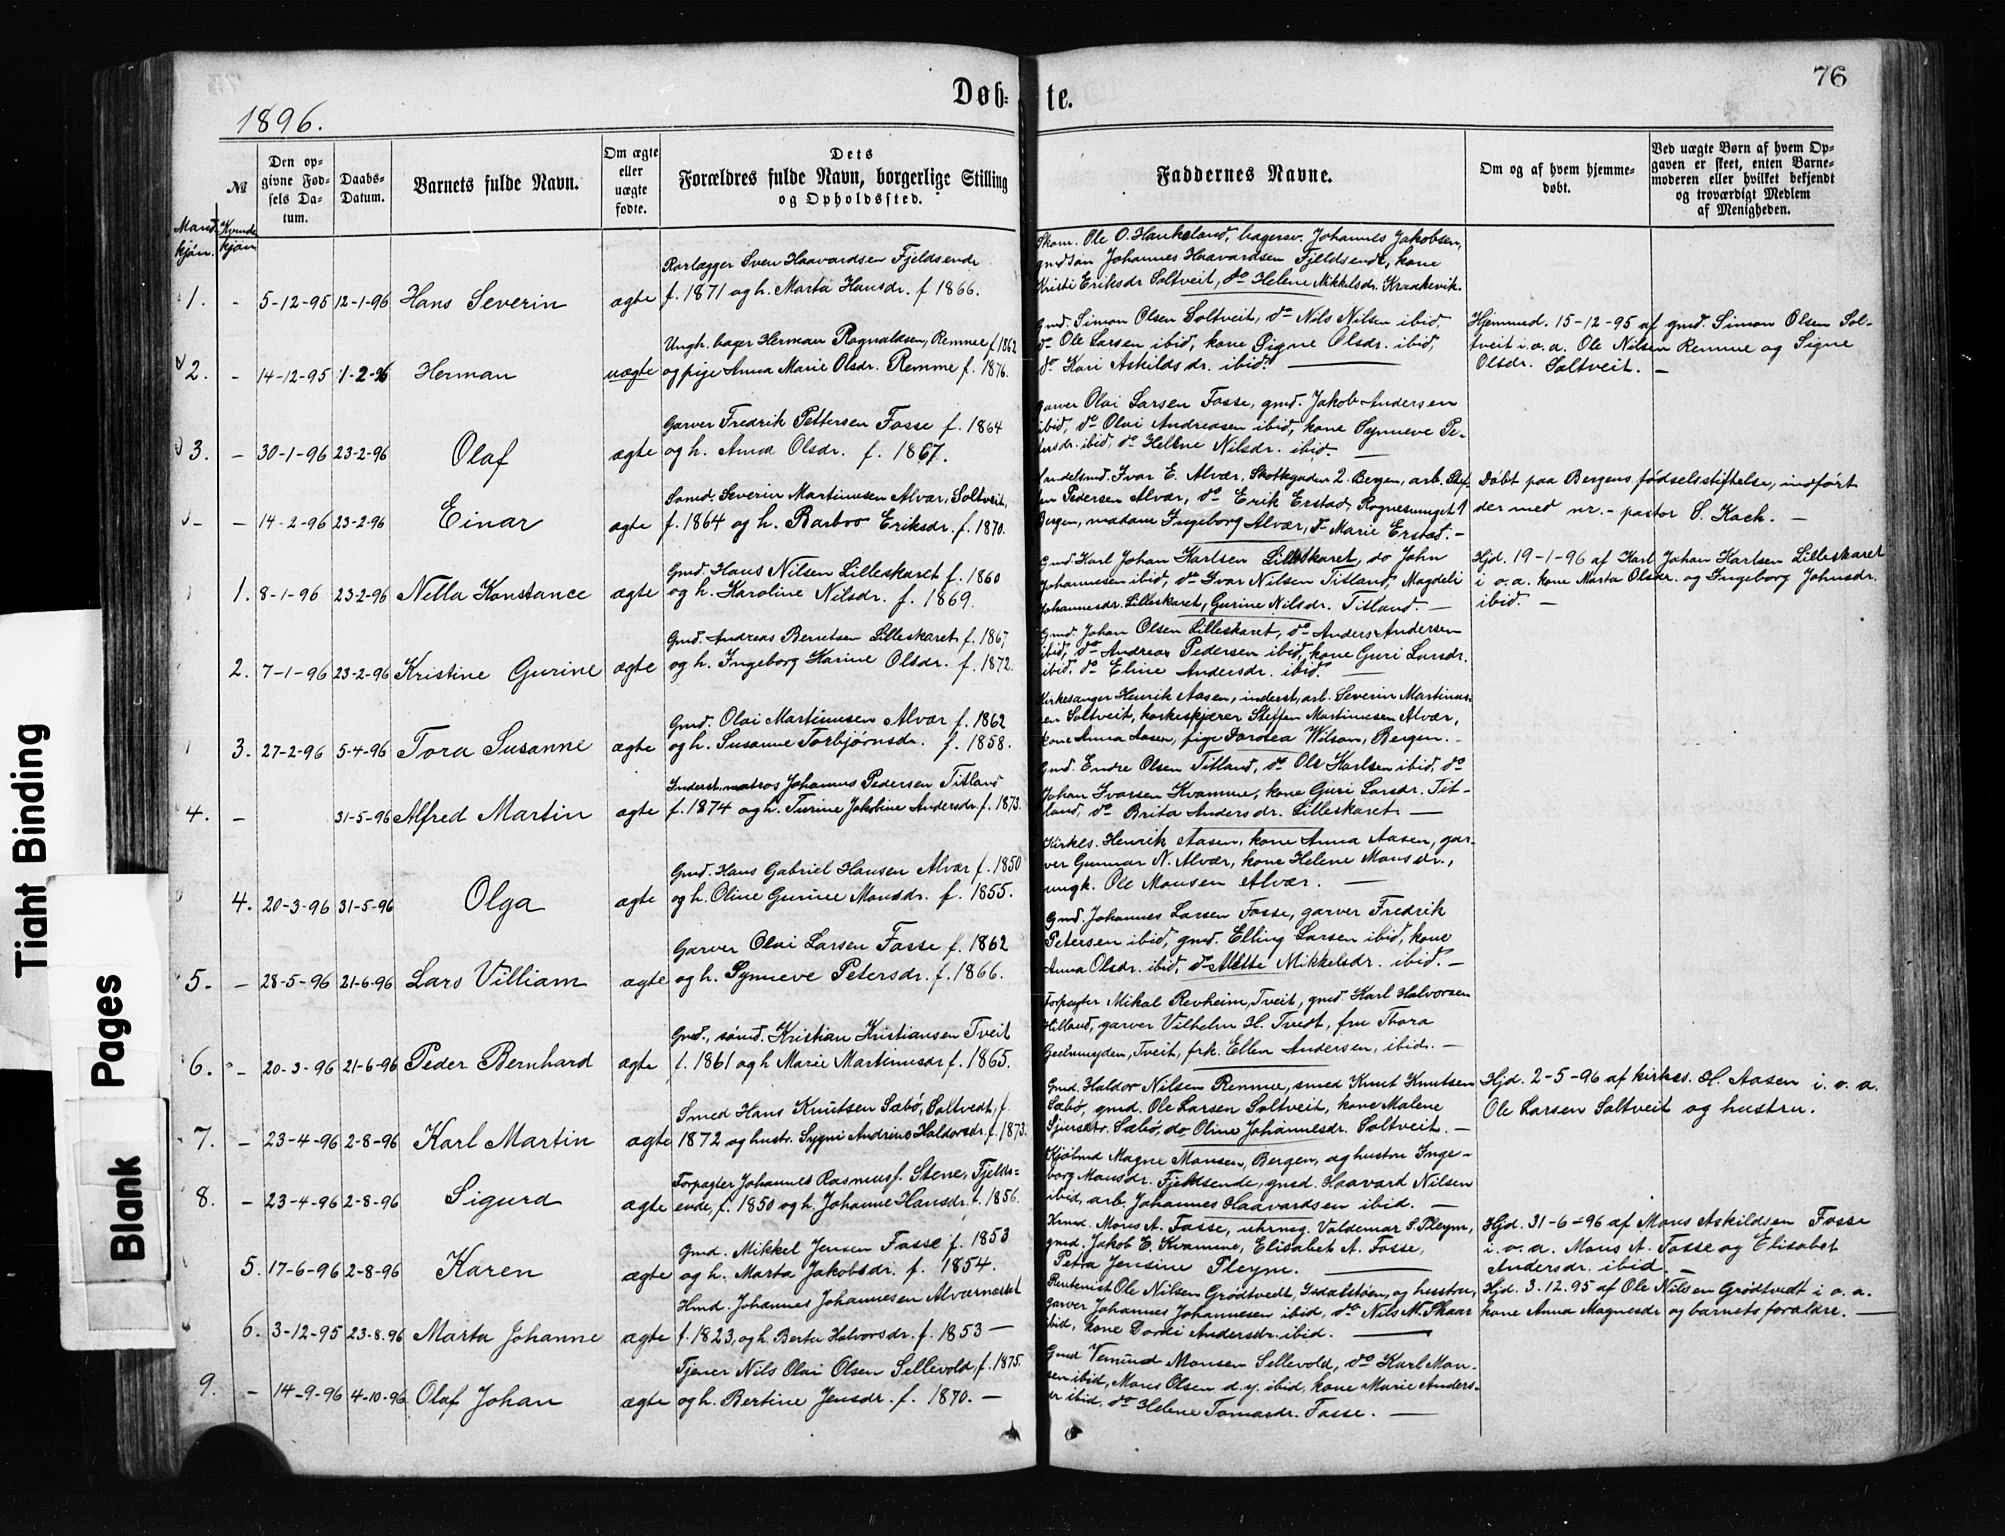 76
Døb- te.
1896.
№
Mand-kjøn.
Kvinde-kjøn
Den op-
givne Fød-
sels Da-
tum.
Daabs-
Datum.
Barnets fulde Navn.
Om ægte
eller
uægte
fødte.
Dets
Forældres fulde Navn, borgerlige Stilling
og Opholdssted.
Faddernes Navne.
Om og af hvem hjemme-
døbt.
Ved uægte Børn af hvem Op-
gaven er skeet, enten Barne-
moderen eller hvilket bekjendt
og troværdigt Medlem
af Menigheden.
1. - 5-12-95 12-1-96 Hans Severin ægte
Rorlægger Sven Haavardsen Fjeldsende
f. 1871 og h. Marta Hansdr. f. 1866.
Skom. Ole O. Haukeland, bagersv. Johannes Jakobsen,
gmdsøn Johannes Haavardsen Fjeldsende, kone
Kristi Eriksdr Soltveit, do Helene Mikkelsdr. Kraakevik.
2. - 14-12-95 1-2-96 Herman uægte
Ungk. bager Herman Rognaldsen, Remme f. 1862
og pige Anna Marie Olsdr. Remme f. 1876.
Gmd. Simon Olsen Soltveit, do Nils Nilsen ibid,
do Ole Larsen ibid, kone Signe Olsdr. ibid,
do Kari Askildsdr. ibid. —
Hjemmed. 15-12-95 af gmd. Simon Olsen Sol-
tveit i.o.a. Ole Nilsen Remme og Signe
Olsdr. Soltveit. —
3. - 30-1-96 23-2-96 Olaf ægte
Garver Fredrik Pettersen Fosse f. 1864
og h. Anna Olsdr. f. 1867.
Garver Olai Larsen Fosse, gmd. Jakob Andersen
ibid, do Olai Andreasen ibid, kone Synneve Pe-
tersdr. ibid, do Helene Nilsdr. ibid. —
- - 14-2-96 23-2-96 Einar ægte
Sømd. Severin Martinusen Alvær, Soltveit,
f. 1864 og h. Barbro Eriksdr. f. 1870.
Handelsmd. Ivar E. Alvær, Skottegaden 2 Bergen, arb. Stef-
fen Pedersen Alvær, do Erik Erstad, Rognesmuget 1
Bergen, madame Ingeborg Alvær, do Marie Erstad. —
Døbt paa Bergens fødselsstiftelse, indført
der med nr. - pastor S. Koch. —
1. 8-1-96 23-2-96 Nella Konstance ægte
Gmd. Hans Nilsen Lilleskaret f. 1860
og h. Karoline Nilsdr. f. 1869.
Gmd. Karl Johan Karlsen Lilleskaret, do John
Johannesen ibid, do Ivar Nilsen Titland, Magdeli
Johannesdr. Lilleskaret, Gurine Nilsdr. Titland. —
Hjd. 19-1-96 af Karl Johan Karlsen Lilleskaret
i o.a. kone Marta Olsdr. og Ingeborg Johnsdr.
ibid. —
2. 7-1-96 23-2-96 Kristine Gurine ægte
Gmd. Andreas Berntsen Lilleskaret f. 1867
og h. Ingeborg Karine Olsdr. f. 1872.
Gmd. Johan Olsen Lilleskaret, do Anders Andersen
ibid, do Andreas Pedersen ibid, kone Guri Larsdr.
ibid, do Eline Andersdr. ibid. —
3. 27-2-96 5-4-96 Tora Susanne ægte
Gmd. Olai Martinusen Alvær f. 1862
og h. Susanne Torbjørnsdr. f. 1858.
Kirkesanger Henrik Aasen, inderst, arb. Severin Martinus-
sen Soltveit, korkeskjærer Steffen Martinusen Alvær,
kone Anna Aasen, pige Dorotea Wilson, Bergen. —
4. - 31-5-96 Alfred Martin ægte
Inderst, matros Johannes Pedersen Titland
f. 1874 og h. Turine Jakobine Andersdr. f. 1873.
Gmd. Endre Olsen Titland, do Ole Karlsen ibid, do
Johan Ivarsen Kvamme, kone Guri Larsdr. Tit-
land, do Brita Andersdr. Lilleskaret —
4. 20-3-96 31-5-96 Olga ægte
Gmd. Hans Gabriel Hansen Alvær f. 1850
og h. Oline Gurine Monsdr. f. 1855.
Kirkes. Henrik Aasen, kone Anna Aasen, gar-
ver Gunnar N. Alvær, kone Helene Monsdr.,
ungk. Ole Monsen Alvær. —
5. - 28-5-96 21-6-96 Lars Villiam ægte
Garver Olai Larsen Fosse f. 1862
og h. Synneve Petersdr. f. 1866.
Gmd. Johannes Larsen Fosse, garver Fredrik
Petersen ibid, gmd. Elling Larsen ibid, kone
Anna Olsdr. ibid, do Mette Mikkelsdr. ibid. —
6. - 20-3-96 21-6-96 Peder Bernhard ægte
Gmd., sømd. Kristian Kristiansen Tveit
f. 1861 og h Marie Martinusdr f. 1865.
Forpagter Mikal Revheim, Tveit, gmd. Karl Halvorsen
Hilland, garver Vilhelm H. Tvedt, fru Thora
Geelmuyden, Tveit, frk. Ellen Andersen, ibid. —
7. - 23-4-96 2-8-96 Karl Martin ægte
Smed Hans Knutsen Sæbø, Soltvedt, f.
1872 og hustr. Sygni Andrius Haldorsdr. f. 1873.
Gmd. Haldor Nilsen Remme, smed Knut Knutsen
Sæbø, gmd. Ole Larsen Soltveit, kone Malene
Sjursdtr. Sæbø, do Oline Johannesdr. Soltveit. —
Hjd. 2-5-96 af kirkes. H. Aasen i. o. a.
Ole Larsen Soltveit og hustru.
8. - 23-4-96 2-8-96 Sigurd ægte
Forpagter Johannes Rasmusf. Stene, Fjelds-
ende, f. 1850 og h. Johanne Hansdr. f. 1856.
Kjøbmd Magne Monsen, Bergen, og hustru Inge-
borg Monsdr. Fjeldsende, gmd. Haavard Nilsen
ibid, arb. Johannes Haavardsen ibid. —
5. 17-6-96 2-8-96 Karen ægte
Gmd. Mikkel Jensen Fosse f. 1853
og h. Marta Jakobsdr. f. 1854.
Kmd. Mons A. Fosse, uhrmg. Valdemar S. Pleym,
gmd. Jakob E. Kvamme, Elisabet A. Fosse,
Petra Jensine Pleym. —
Hjd. 31-6-96 af Mons Askildsen Fosse
i. o. a. Mons A. Fosse og Elisabet
Andersdr. ibid. —
6. 3-12-95 23-8-96 Marta Johanne ægte
Hmd. Johannes Johannesen Alværnesset
f. 1823, og h. Berta Halvorsdr. f. 1853 —
Rentenist Ole Nilsen Grødtvedt, Isdalstøen, og hustru,
garver Johannes Johannesen ibid, do Nils M. Skaar
ibid, kone Dordi Andersdr. ibid. —
Hjd. 3.12.95 af Ole Nilsen Grødtvedt i o. a.
kone Anna Magnesdr og barnets forældre. —
9. - 14-9-96 4-10-96 Olaf Johan ægte
Tjener Nils Olai Olsen Sellevold, f. 1875.
og h. Bertine Jensdr. f. 1870. —
Gmd Vemund Monsen Sellevold, do Karl Mon-
sen ibid, Mons Olsen d.y. ibid, kone Marie Anders-
dr ibid, do Helene Tomasdr. Fosse. —
Tight Binding
Blank Pages